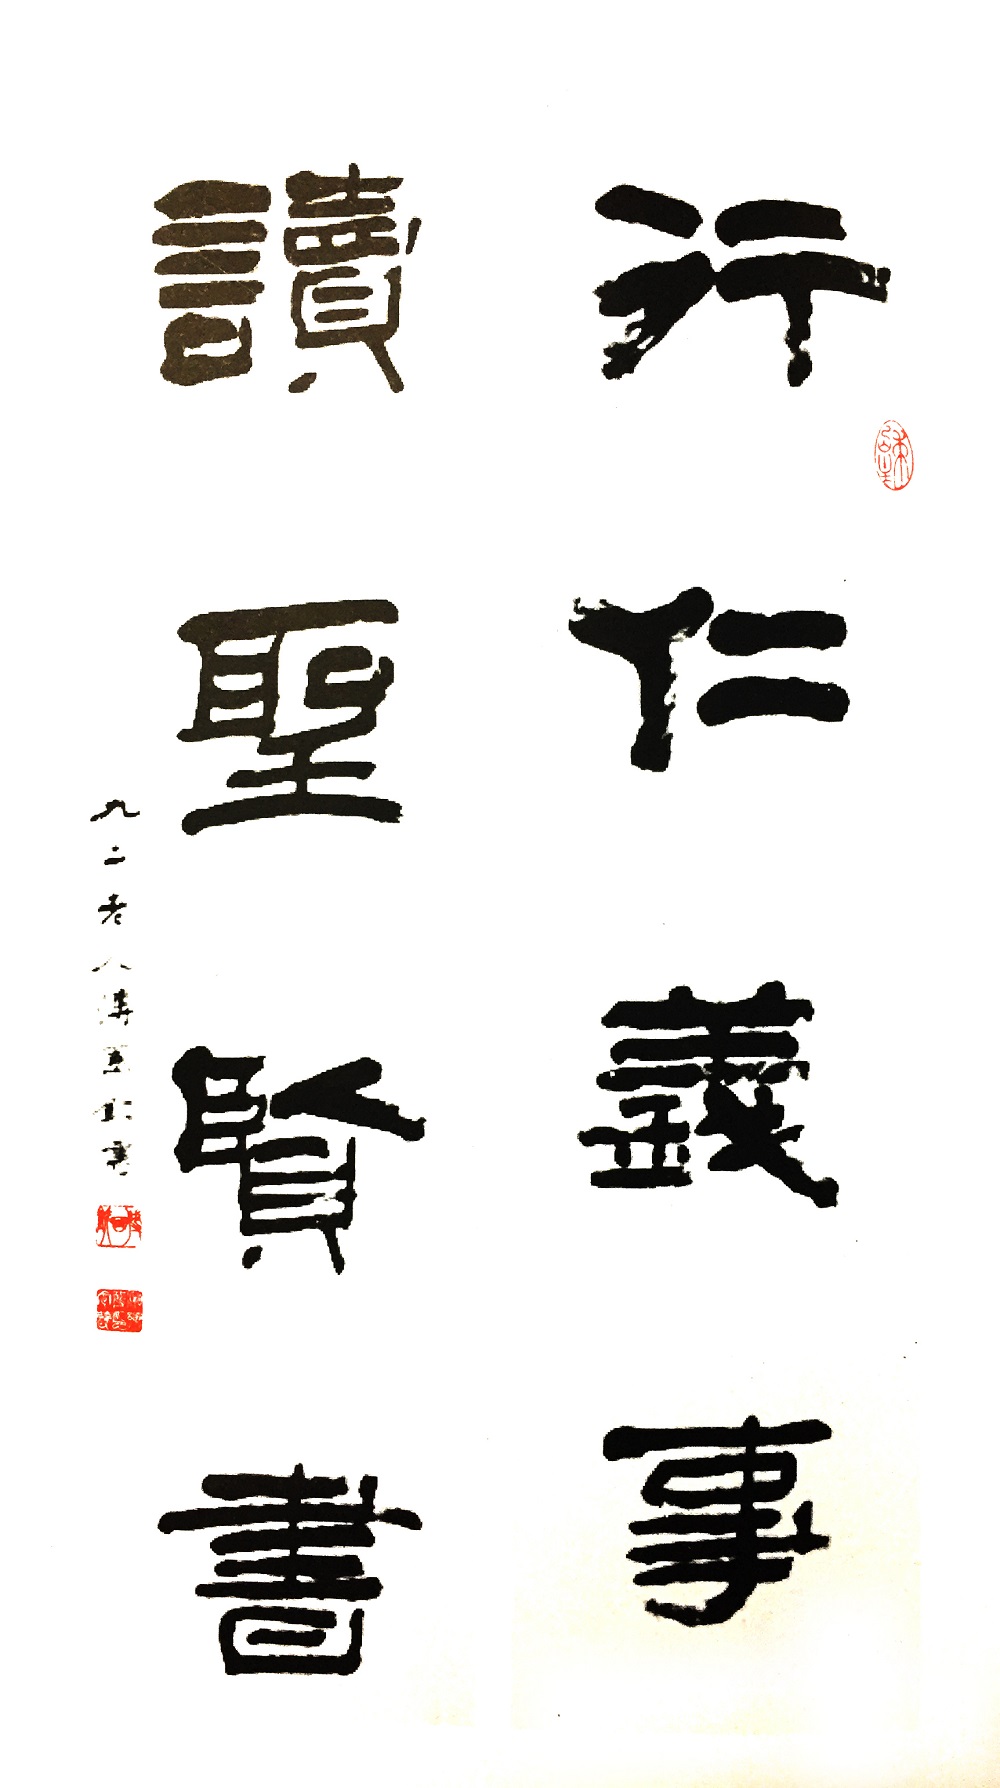 行仁義事
讀聖賢書
九二老人溥熏彩書